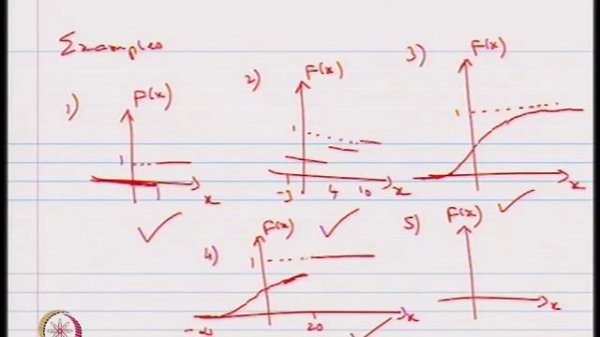 Examples
1) F(x) 1 x
2) F(x) 1 -3 4 10 x
3) F(x) 1 x
4) F(x) 1 -∞ 20 x
5) F(x) x